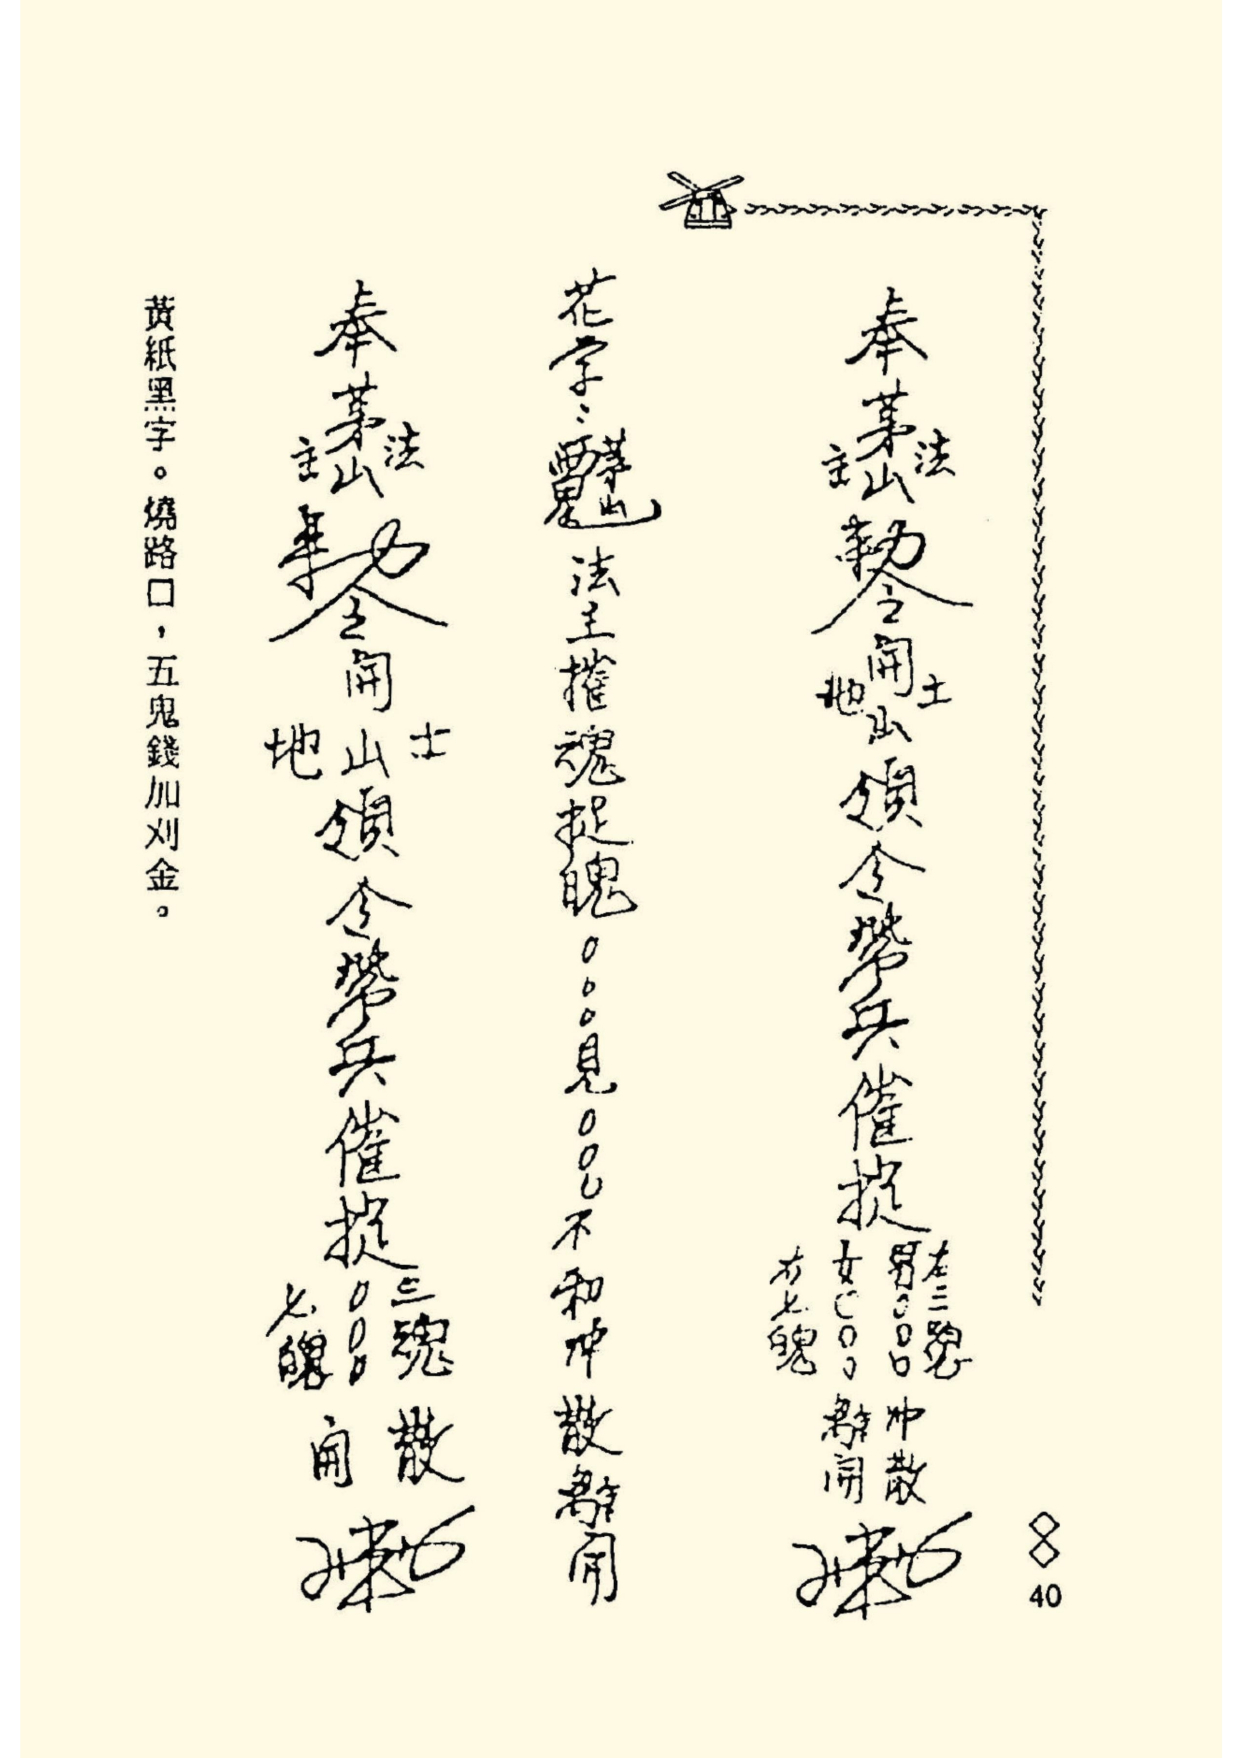 奉茅山法主敕令開山土地領令帶兵催捉
男000左三魂
女000右七魄
冲散
離開
花字:茅山法主摧魂捉魄000見000不和冲散離開
奉茅山法主敕令開山土地領令帶兵催捉000三魂七魄散開
黃紙黑字。燒路口,五鬼錢加刈金。
40